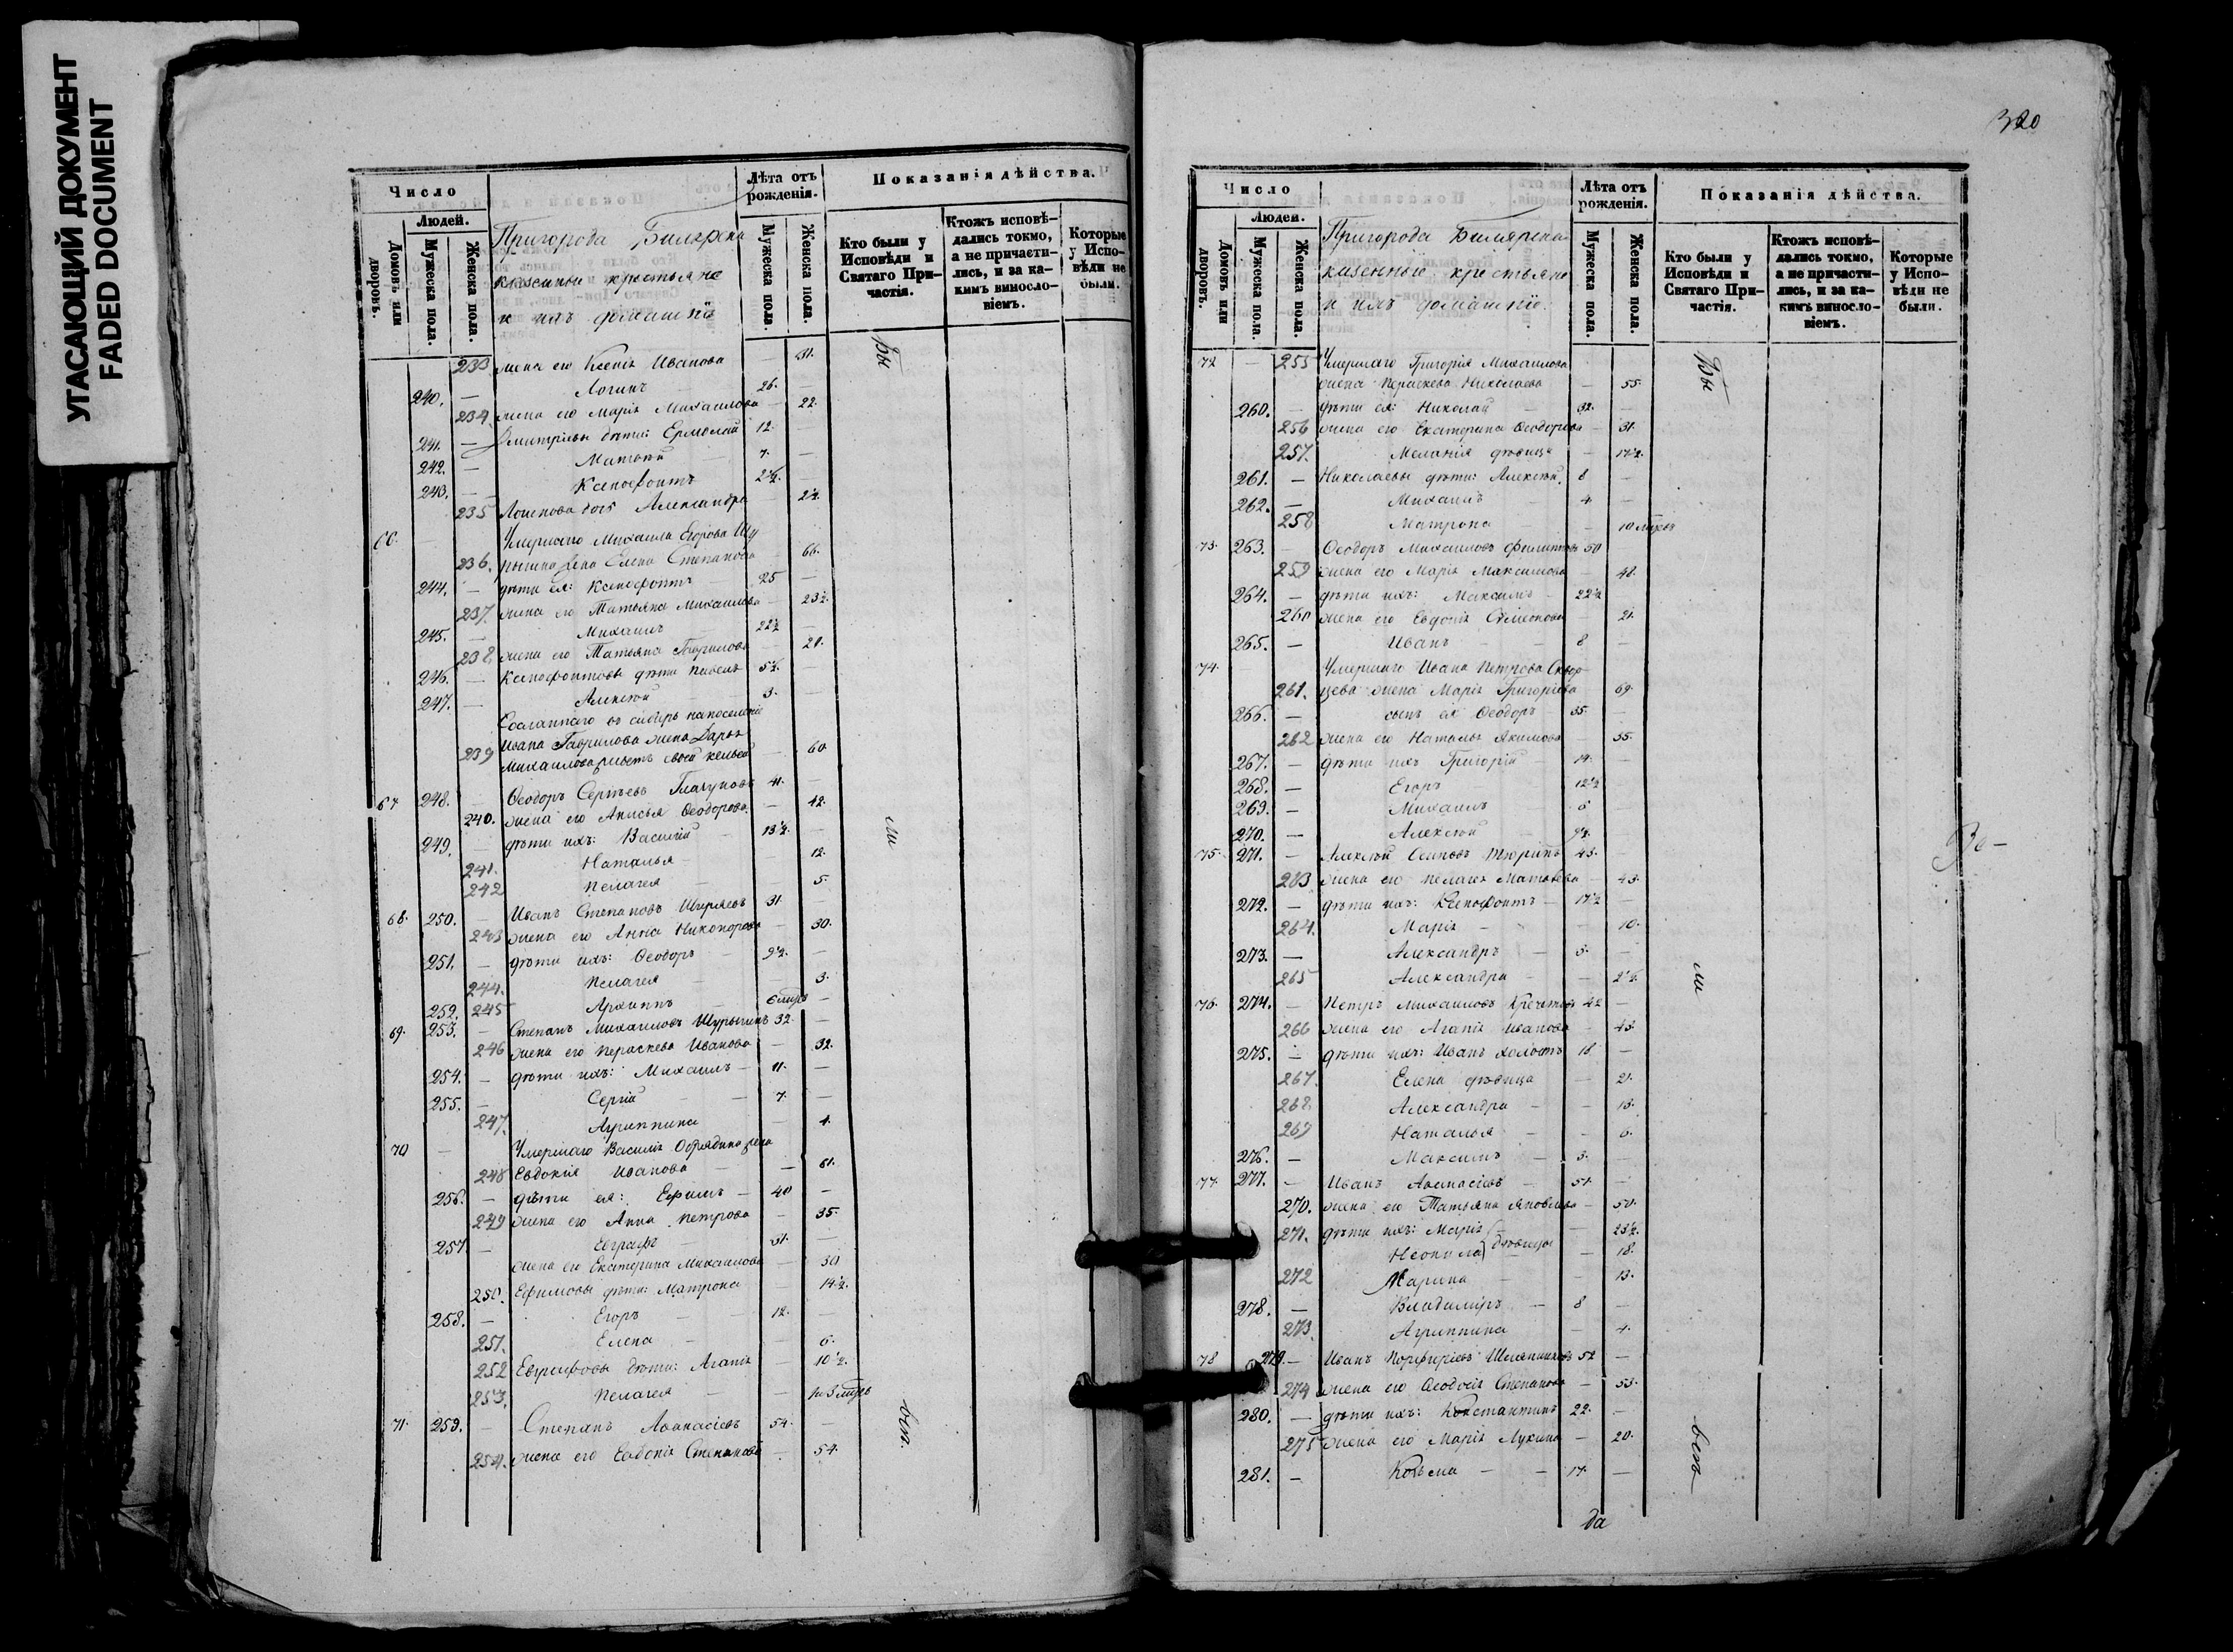 УГАСАЮЩИЙ ДОКУМЕНТ
FADED DOCUMENT
Число
Людей.
Домовъ или дворовъ.
Мужеска пола.
Женска пола.
Пригорода Билярска
казенные крестьяне
и ихъ домашніе
Лѣта отъ рожденія.
Мужеска пола.
Женска пола.
Показанія дѣйства.
Кто были у Исповѣди и Святаго Причастія.
Ктожъ исповѣ-
дались токмо,
а не причасти-
лись, и за ка-
кимъ винosло-
віемъ.
Которые
у Испо-
вѣди не
были.
233 жена его Ксенія Иванова — 31.
240. — Логинъ 26. —
234 жена его Марія Михаилова — 22.
241. — Дмитріевы дѣти: Ермолай 12. —
242. — Матвѣй 7. —
243. — Ксенофонтъ 2½. —
235 Логинова дочь Александра — 2½.
66. — Умершаго Михаила Егорова Шу
236. рыгина жена Елена Степанова — 66.
244. — дѣти ея: Ксенофонтъ 25 —
237. жена его Татьяна Михаилова — 23½.
245. — Михаилъ 22½ —
238 жена его Татьяна Гаврилова — 21.
246. — Ксенофонтовы дѣти Павелъ 5½. —
247. — Алексѣй 3. —
Сосланнаго въ сибирь на поселеніе
239 Ивана Гаврилова жена Дарья — 60.
Михаилова
67 248. — Ѳеодоръ Сергѣевъ 41. —
240. жена его Анисья Ѳеодорова — 42.
249. — дѣти ихъ: Василій 13½. —
241. Наталья — 12.
242 Пелагея — 5.
68. 250. — Иванъ Степановъ Ширяевъ 31. —
243 жена его Анна Никонорова — 30.
251. — дѣти ихъ: Ѳеодоръ 9½. —
244. Пелагея — 3.
252. 245 Архиппъ —
69. 253. — Степанъ Михаиловъ Шурыгинъ 32. —
246 жена его Параскева Иванова — 32.
254. — дѣти ихъ: Михаилъ 11. —
255. — Сергій 7. —
247. Агриппина — 4.
70 — Умершаго Василія Обрядина жена
248 Евдокія Иванова — 61.
256. — дѣти ея: Ефимъ 40 —
249 жена его Анна Петрова — 35.
257. — Евграфъ 31. —
жена его Екатерина Михаилова — 30
250. Ефимовы дѣти: Матрона — 14½.
258. — Егоръ 12. —
251. Елена — 6.
252 Евграфовы дѣти: Агапія — 10½.
253. Пелагея —
71. 259. — Степанъ Аѳанасіевъ 54. —
254. жена его Евдокія Степанова — 54.
Бы
ли
всѣ.
320
Число
Людей.
Домовъ или дворовъ.
Мужеска пола.
Женска пола.
Пригорода Билярска
казенные крестьяне
и ихъ домашніе.
Лѣта отъ рожденія.
Мужеска пола.
Женска пола.
Показанія дѣйства.
Кто были у Исповѣди и Святаго Причастія.
Ктожъ исповѣ-
дались токмо,
а не причасти-
лись, и за ка-
кимъ виносло-
віемъ.
Которые
у Испо-
вѣди не
были.
72 — 255 Умершаго Григорія Михаилова
жена Параскева Николаева — 55.
260. — дѣти ея: Николай 32. —
256 жена его Екатерина Ѳеодорова — 31.
257. Меланія дѣвица — 17½.
261. — Николаевы дѣти: Алексѣй 8 —
262. — Михаилъ 4 —
258 Матрона — 10
73. 263. — Ѳеодоръ Михаиловъ Филиповъ 50
259 жена его Марія Максимова — 48.
264. — дѣти ихъ: Максимъ 22½
260 жена его Евдокія Симеонова — 21.
265. — Иванъ 8 —
74. Умершаго Ивана Петрова Сквор
261. цева жена Марія Григоріева — 69.
266. — сынъ ея Ѳеодоръ 35. —
262 жена его Наталья Якимова — 35.
267. — дѣти ихъ Григорій 14. —
268. — Егоръ 12½ —
269. — Михаилъ 6 —
270. — Алексѣй —
75. 271. — Алексѣй Осиповъ Тюринъ 43. —
263 жена его Пелагея Матвѣева — 43.
272. — дѣти ихъ: Ксенофонтъ 17½ —
264. Марія — 10.
273. — Александръ 5. —
265 Александра — 2½.
76. 274. — Петръ Михаиловъ Кречетовъ 42 —
266 жена его Агапія Иванова — 43.
275. — дѣти ихъ: Иванъ холостъ 18 —
267. Елена дѣвица — 21.
268 Александра — 13.
269 Наталья — 6.
276. — Максимъ 3. —
77. 277. — Иванъ Аѳанасіевъ 51. —
270. жена его Татьяна Яковлева — 50.
271. дѣти ихъ: Марія — 23½.
Неонила дѣвицы — 18.
272 Марина — 13.
278. — Владиміръ 8 —
273. Агриппина — 4.
78 279. — Иванъ Порфиріевъ Шляпниковъ 52 —
274 жена его Ѳеодосія Степанова — 53.
280. — дѣти ихъ: Константинъ 22. —
275 жена его Марія Лукина — 20.
281. — Козьма 17. —
Бы
ли
всѣ
да